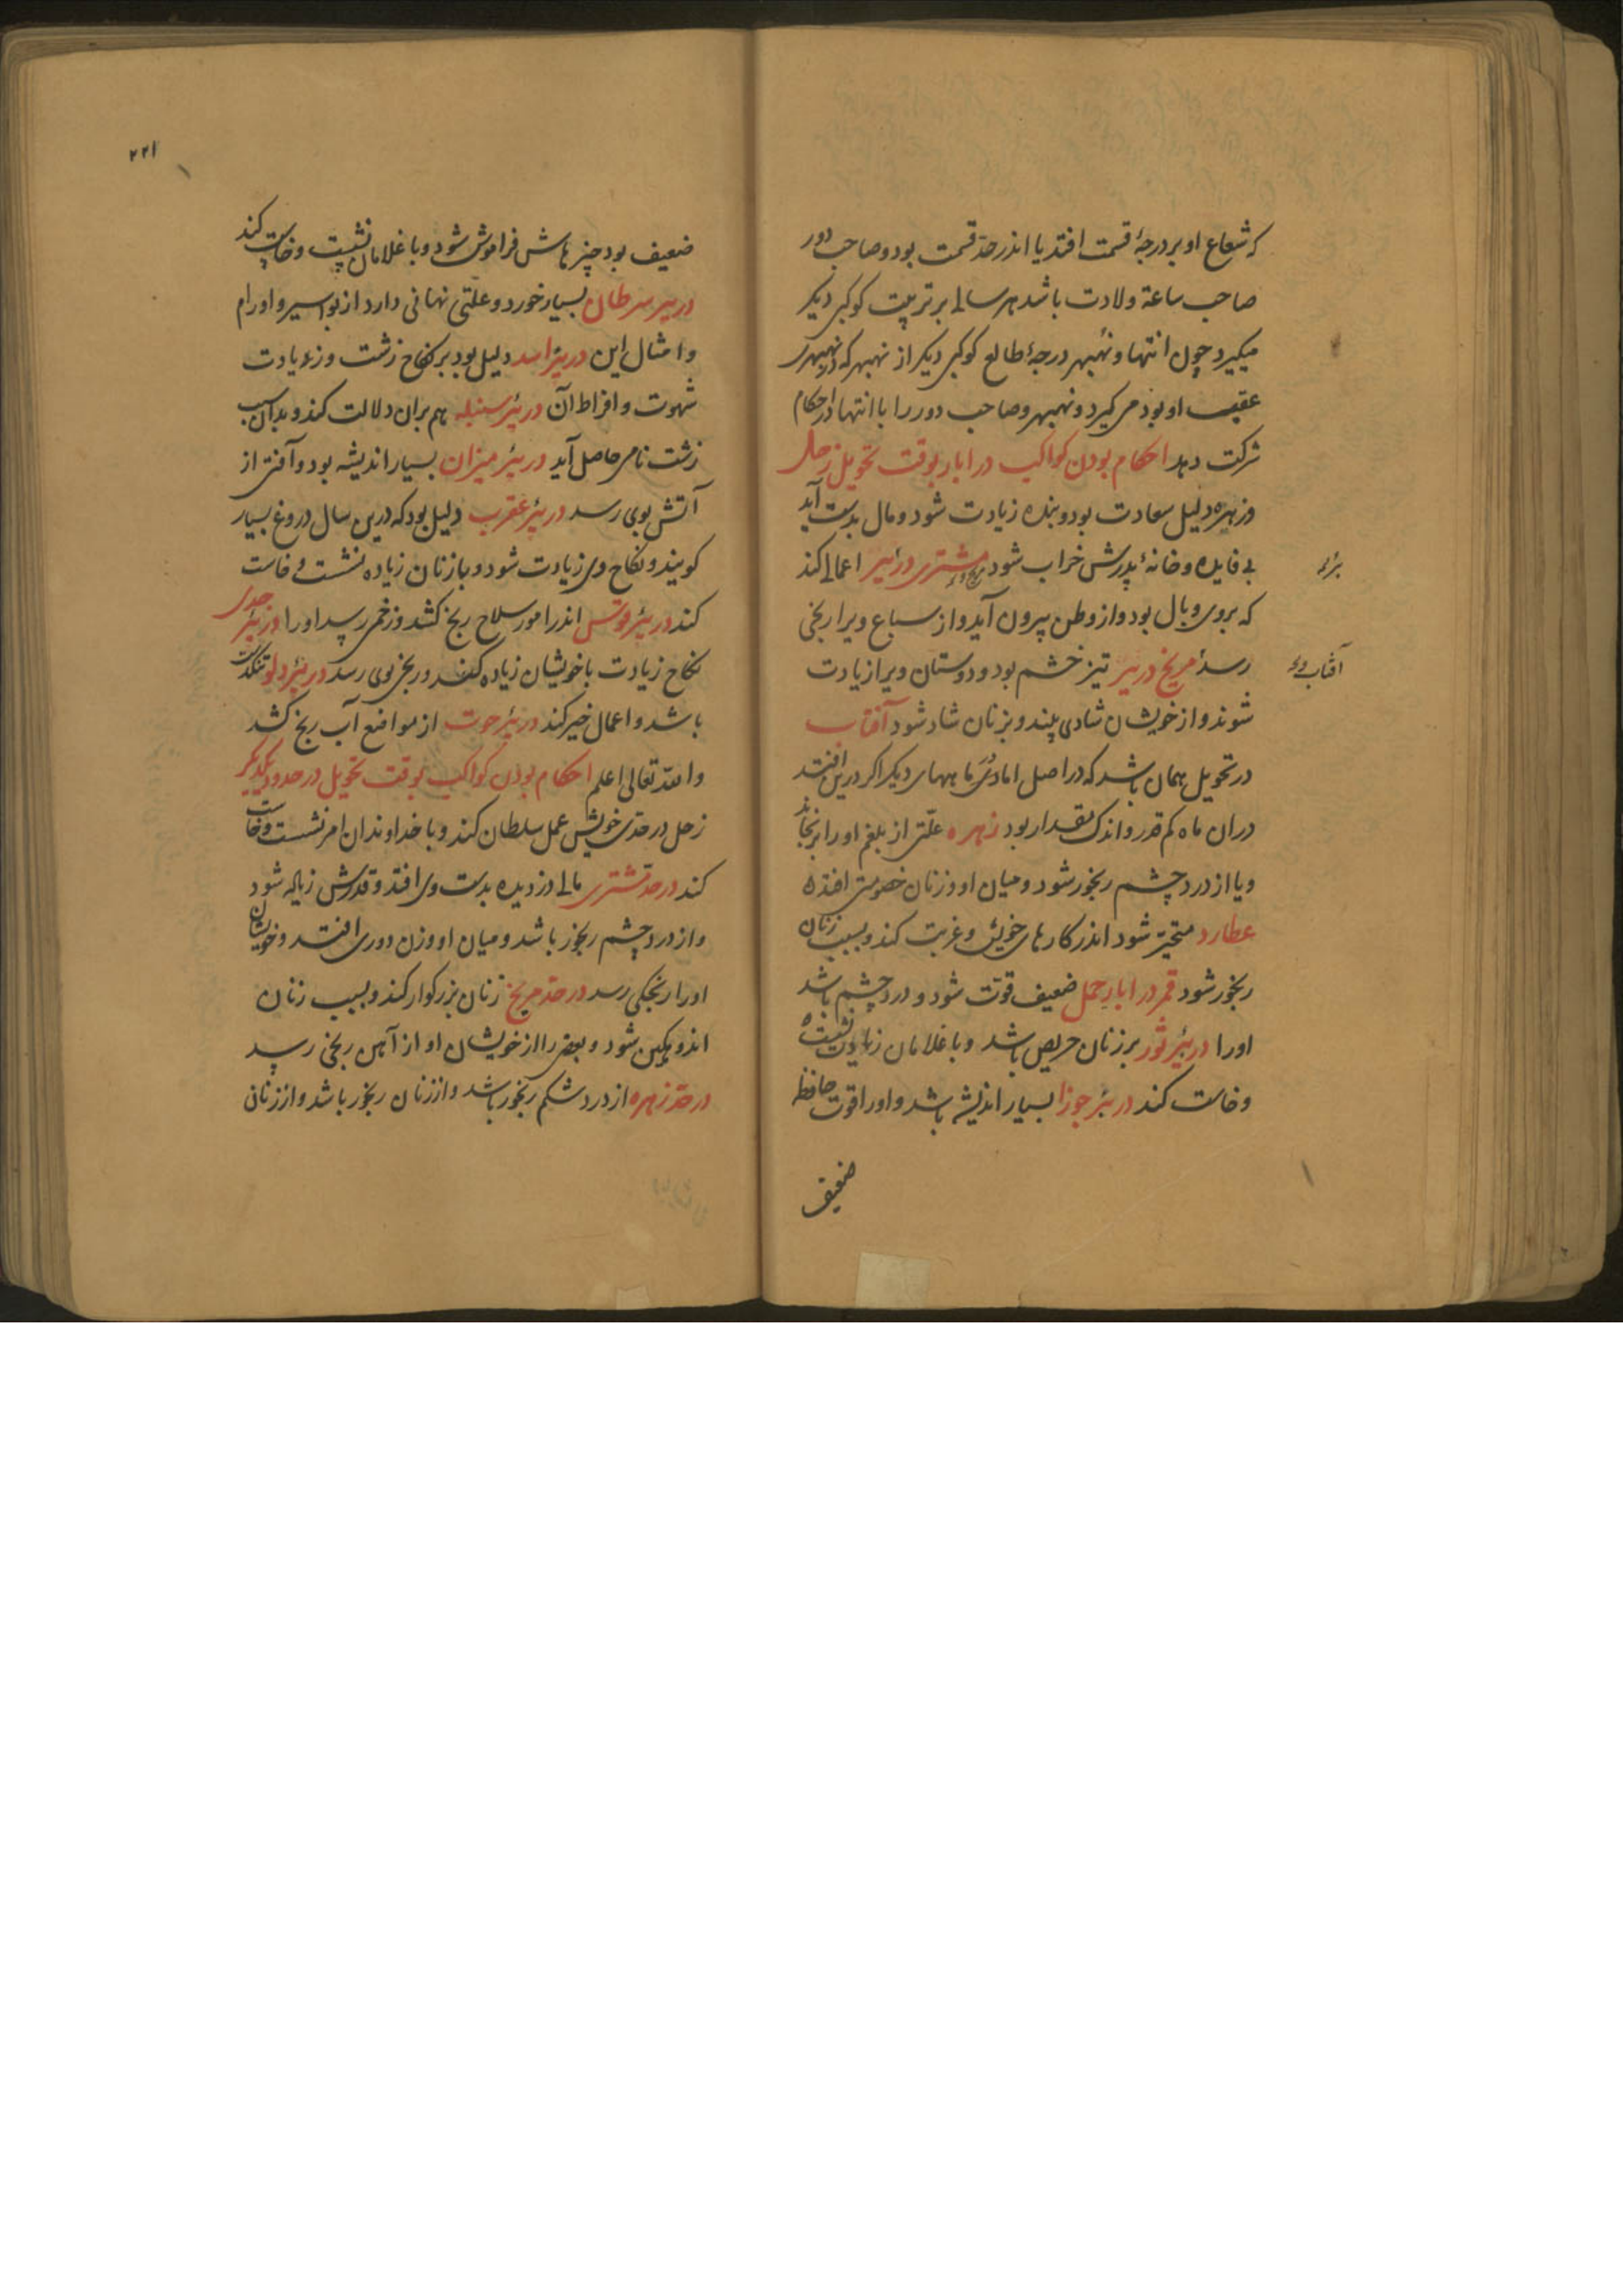 که شعاع او بر درجهٔ قسمت افتد یا اندر حد قسمت بود و صاحب دور
صاحب ساعة ولادت باشد هر سالی بر ترتیب کوکبی دیکر
میکیرد چون انتها و نهبهر درجهٔ طالع کوکبی دیکر از نهبهر که در نهبهری
عقیب او بود می کیرد و نهبهر و صاحب دور را با انتها در احکام
شرکت دهد احکام بودن کواکب در ابار بوقت تحویل زحل
دلیل سعادت بود و بنده زیادت شود و مال بدست آید
بی فایده و خانهٔ پدرش خراب شود مشتری در بئر اعمالی کند
بئر او
که بروی وبال بود و از وطن بیرون آید و از سباع ویرا رنجی
رسد مریخ در بئر تیز خشم بود و دوستان ویرا زیادت
آفتاب وی
شوند و از خویشان شادی بیند و بزنان شاد شود آفتاب
در تحویل همان باشد که در اصل اما دی ماههای دیکر اکر درین افتد
دران ماه کم قدر و اندک مقدار بود زهره علتی از بلغم او را برنجاند
و یا از درد چشم رنجور شود و میان او و زنان خصومتی افتد
عطارد متحیر شود اندر کارهای خویش و غربت کند و بسبب زنان
رنجور شود قمر در ابار حمل ضعیف قوت شود و درد چشم باشد
اورا در بئر ثور بر زنان حریص باشد و با غلامان زیادت نشست
و خاست کند در بئر جوزا بسیار اندیشه باشد و اورا قوت حافظه
ضعیف
۲۲۱
ضعیف بود چیزهاش فراموش شود و با غلامان نشست و خاست کند
در بئر سرطان بسیار خورد و علتی نهانی دارد از بواسیر و اورام
و امثال این در بئر اسد دلیل بود بر نکاح زشت و زیادت
شهوت و افراط آن در بئر سنبله هم بران دلالت کند و بدان سبب
زشت نامی حاصل آید در بئر میزان بسیار اندیشه بود و آفتی از
آتش بوی رسد در بئر عقرب دلیل بود که درین سال دروغ بسیار
کویند و نکاح وی زیادت شود و با زنان زیاده نشست و خاست
کند در بئر قوس اندر امور سلاح رنج کشد و زخمی رسد اورا در بئر جدی
نکاح زیادت با خویشان زیاده کند و رنجی بوی رسد در بئر دلو تنکدست
باشد و اعمال خیر کند در بئر حوت از مواضع آب رنج کشد
والله تعالی اعلم احکام بودن کواکب بوقت تحویل در حدود یکدیکر
زحل در حد خویش عمل سلطان کند و با خداوندان امر نشست و خاست
کند در حد مشتری مالی دزدیده بدست وی افتد و قدرش زیاده شود
و از درد چشم رنجور باشد و میان او و زن دوری افتد و خویشان
اورا رنجکی رسد در حد مریخ زنان بزرکوار کند و بسبب زنان
اندوهکین شود و بعضی را از خویشان او از آهن رنجی رسد
در حد زهره از درد شکم رنجور باشد و از زنان رنجور باشد و از زنانی